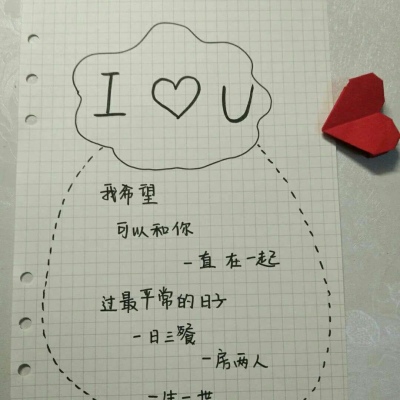 I ♡ U
我希望
可以和你
一直在一起
过最平常的日子
一日三餐
一房两人
一生一世